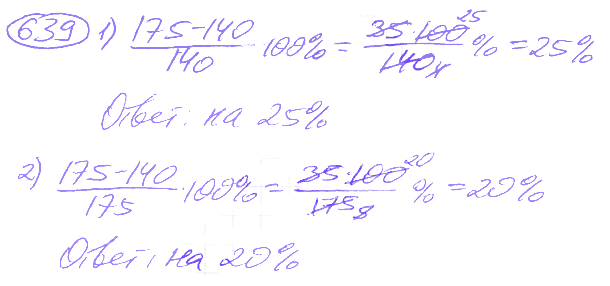 639 1) (175-140)/140 · 100% = (35·100 25)/(140 4) % = 25%
Ответ: на 25%
2) (175-140)/175 · 100% = (35·100 20)/(175 8) % = 20%
Ответ: на 20%